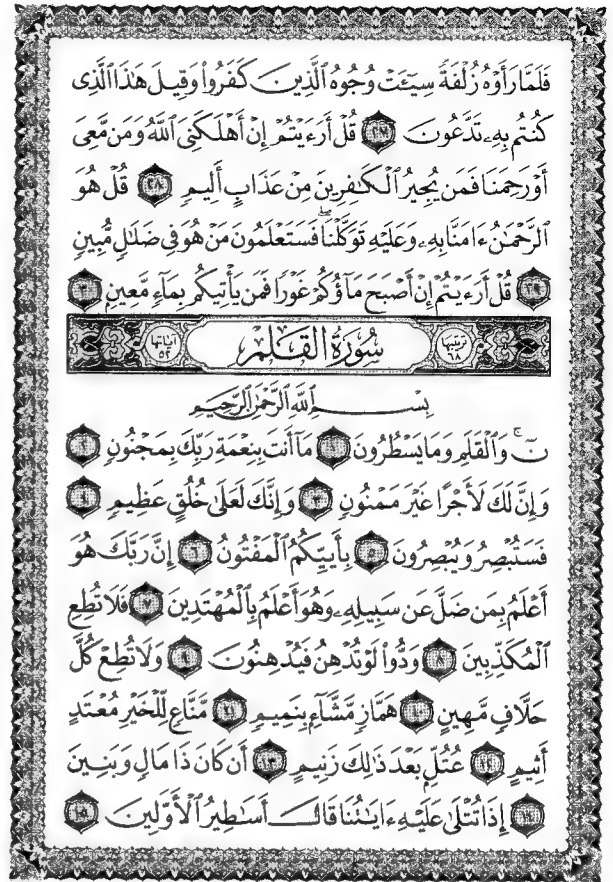 فَلَمَّا رَأَوْهُ زُلْفَةً سِيٓـَٔتْ وُجُوهُ ٱلَّذِينَ كَفَرُوا۟ وَقِيلَ هَـٰذَا ٱلَّذِى
كُنتُم بِهِۦ تَدَّعُونَ ٢٧ قُلْ أَرَءَيْتُمْ إِنْ أَهْلَكَنِىَ ٱللَّهُ وَمَن مَّعِىَ
أَوْ رَحِمَنَا فَمَن يُجِيرُ ٱلْكَـٰفِرِينَ مِنْ عَذَابٍ أَلِيمٍ ٢٨ قُلْ هُوَ
ٱلرَّحْمَـٰنُ ءَامَنَّا بِهِۦ وَعَلَيْهِ تَوَكَّلْنَا ۖ فَسَتَعْلَمُونَ مَنْ هُوَ فِى ضَلَـٰلٍ مُّبِينٍ
٢٩ قُلْ أَرَءَيْتُمْ إِنْ أَصْبَحَ مَآؤُكُمْ غَوْرًا فَمَن يَأْتِيكُم بِمَآءٍ مَّعِينٍۭ ٣٠
ترتيبها ٦٨ سُورَةُ القَلَمِ آياتها ٥٢
بِسْمِ ٱللَّهِ ٱلرَّحْمَـٰنِ ٱلرَّحِيمِ
نٓ ۚ وَٱلْقَلَمِ وَمَا يَسْطُرُونَ ١ مَآ أَنتَ بِنِعْمَةِ رَبِّكَ بِمَجْنُونٍ ٢
وَإِنَّ لَكَ لَأَجْرًا غَيْرَ مَمْنُونٍ ٣ وَإِنَّكَ لَعَلَىٰ خُلُقٍ عَظِيمٍ ٤
فَسَتُبْصِرُ وَيُبْصِرُونَ ٥ بِأَييِّكُمُ ٱلْمَفْتُونُ ٦ إِنَّ رَبَّكَ هُوَ
أَعْلَمُ بِمَن ضَلَّ عَن سَبِيلِهِۦ وَهُوَ أَعْلَمُ بِٱلْمُهْتَدِينَ ٧ فَلَا تُطِعِ
ٱلْمُكَذِّبِينَ ٨ وَدُّوا۟ لَوْ تُدْهِنُ فَيُدْهِنُونَ ٩ وَلَا تُطِعْ كُلَّ
حَلَّافٍ مَّهِينٍ ١٠ هَمَّازٍ مَّشَّآءٍۭ بِنَمِيمٍ ١١ مَّنَّاعٍ لِّلْخَيْرِ مُعْتَدٍ
أَثِيمٍ ١٢ عُتُلٍّۭ بَعْدَ ذَٰلِكَ زَنِيمٍ ١٣ أَن كَانَ ذَا مَالٍ وَبَنِينَ
١٤ إِذَا تُتْلَىٰ عَلَيْهِ ءَايَـٰتُنَا قَالَ أَسَـٰطِيرُ ٱلْأَوَّلِينَ ١٥